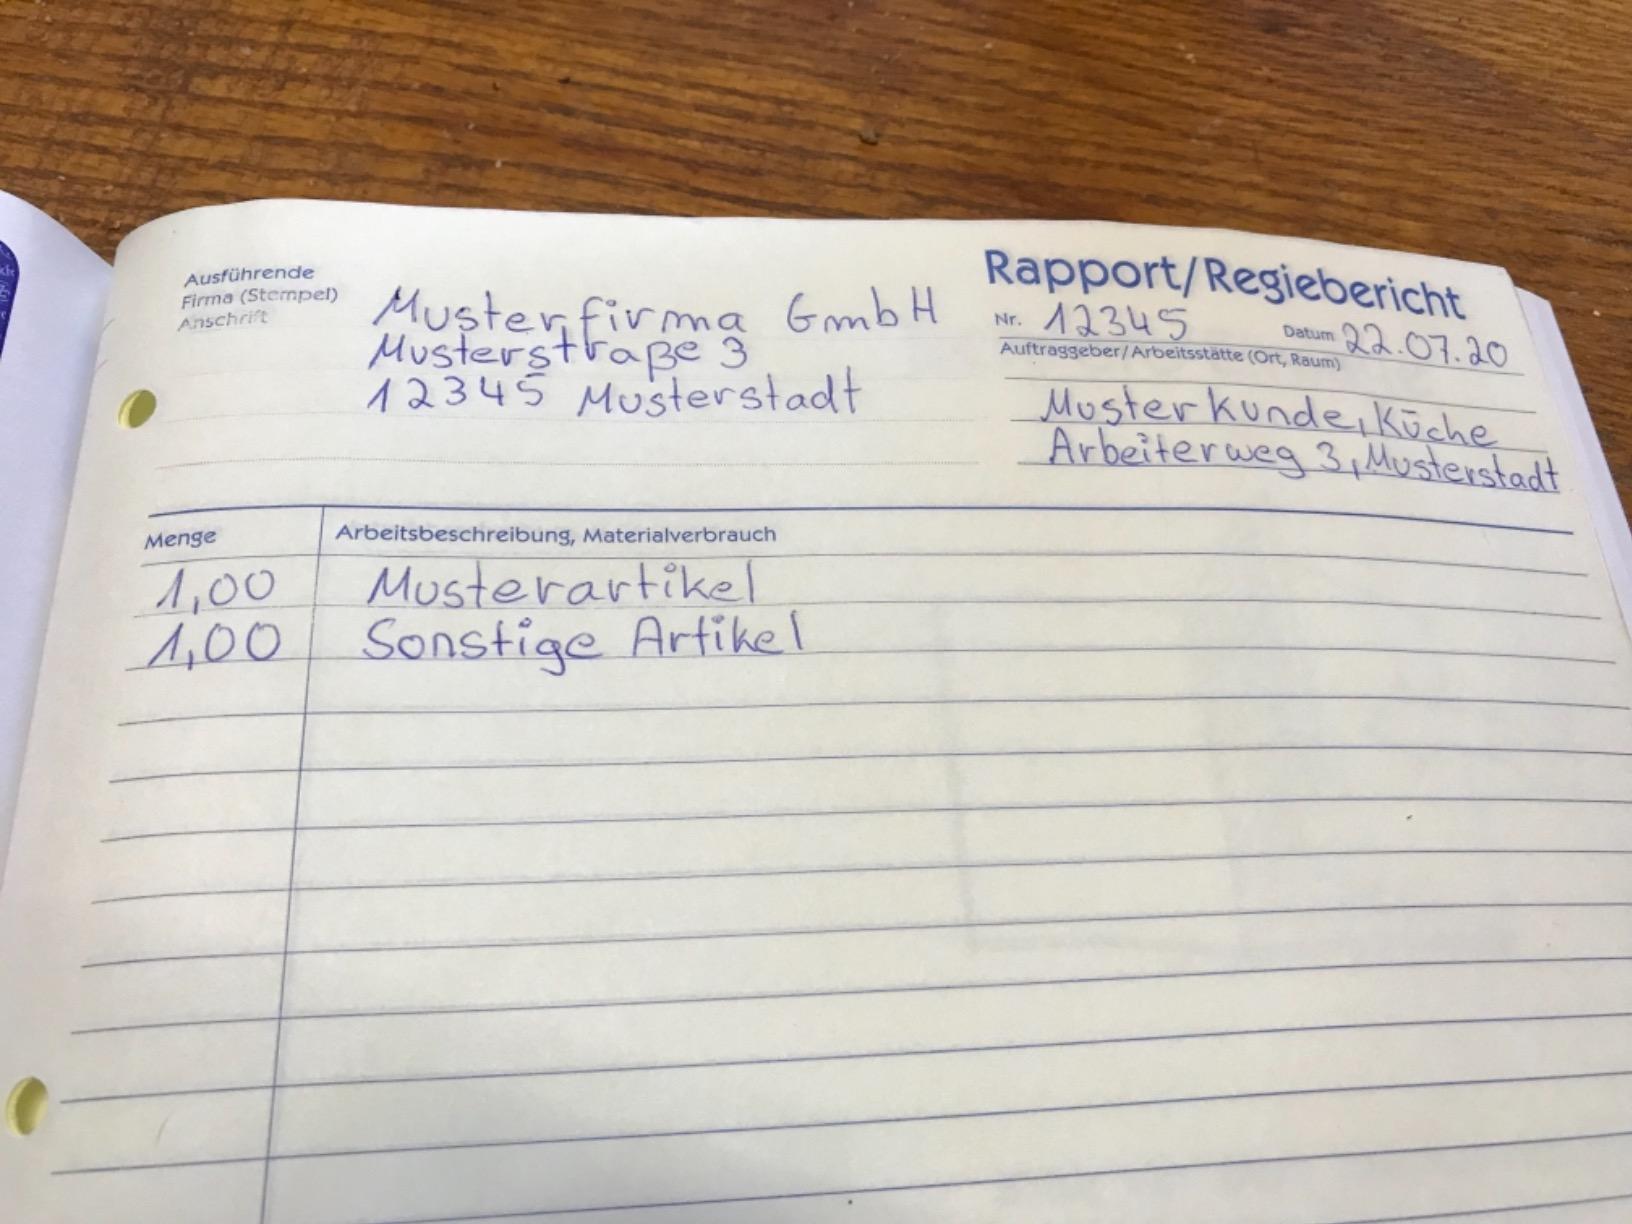 Ausführende
Firma (Stempel)
Anschrift
Musterfirma GmbH
Musterstraße 3
12345 Musterstadt
Rapport/Regiebericht
Nr. 12345 Datum 22.07.20
Auftraggeber/Arbeitsstätte (Ort, Raum)
Musterkunde, Küche
Arbeiterweg 3, Musterstadt
Menge Arbeitsbeschreibung, Materialverbrauch
1,00 Musterartikel
1,00 Sonstige Artikel